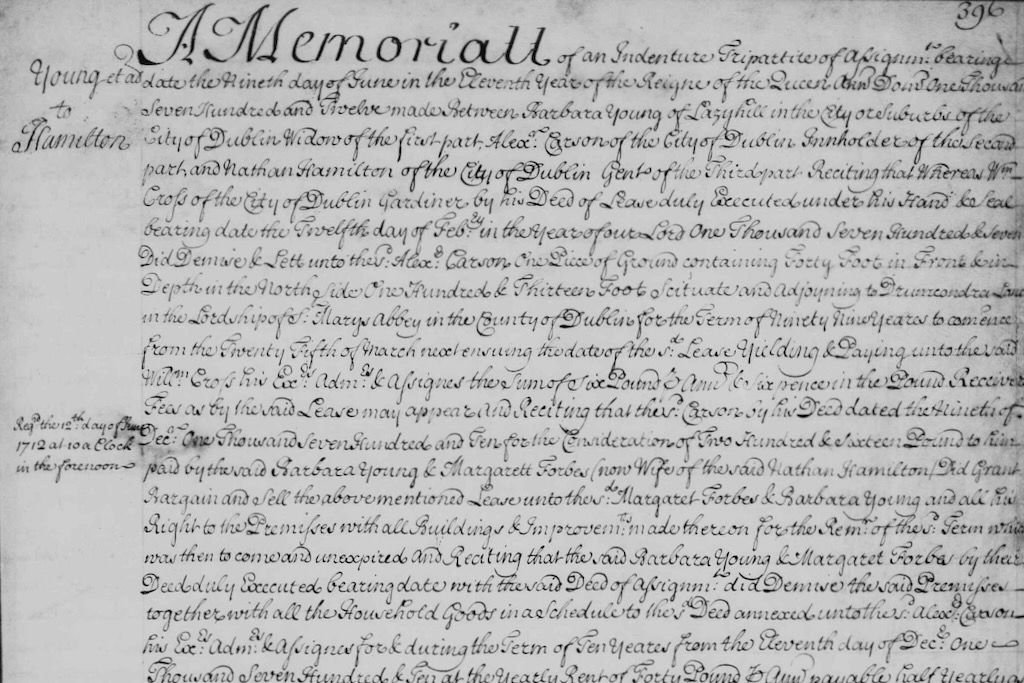 396
A Memoriall of an Indenture Tripartite of Assignmt. bearing
Young et ad
to
Hamilton
date the Nineth day of June in the Eleventh Year of the Reigne of the Queen Ann Domi One Thousa
Seven Hundred and Twelve made Between Barbara Young of Lazyhill in the City or Suburbs of the
City of Dublin Widow of the first part Alexr. Carson of the City of Dublin Innholder of the Second
part, and Nathan Hamilton of the City of Dublin Gent of the Third part Reciting that Whereas Wm
Cross of the City of Dublin Gardiner by his Deed of Lease duly Executed under his Hand & Seal
bearing date the Twelfth day of Febry. in the Year of our Lord One Thousand Seven Hundred & Seven
Did Demise & Lett unto the sd. Alexr. Carson One Piece of Ground containing Forty Foot in Front & in
Depth in the North side One Hundred & Thirteen Foot Scituate and Adjoyning to Drumcondra Lane
in the Lordship of St. Marys Abbey in the County of Dublin for the Term of Ninety Nine Yeares to comence
from the Twenty Fifth of March next ensuing the date of the sd. Lease Yielding & Paying unto the said
Willm. Cross his Exrs. Admrs. & Assignes the Sum of Six Pound P Annm. & Sixpence in the Pound Receiver
Fees as by the said Lease may appear And Reciting that the sd. Carson by his Deed dated the Nineth of
Regd. the 12th. day of June
1712 at 10 a Clock
in the forenoon
Decr. One Thousand Seven Hundred and Ten for the Consideration of Two Hundred & Sixteen Pound to him
paid by the said Barbara Young & Margarett Forbes (now Wife of the said Nathan Hamilton) Did Grant
Bargain and Sell the above mentioned Lease unto the sd. Margaret Forbes & Barbara Young and all his
Right to the Premisses with all Buildings & Improvemts. made thereon for the Remr. of the sd. Term which
was then to come and unexpired And Reciting that the said Barbara Young & Margaret Forbes by their
Deed duly Executed bearing date with the said Deed of Assignmt. did Demise the said Premisses
together with all the Household Goods in a Schedule to the sd. Deed annexed unto the sd. Alexr. Carson
his Exrs. Admrs. & Assignes for & during the Term of Ten Yeares from the Eleventh day of Decr. One
Thousand Seven Hundred & Ten at the Yearly Rent of Forty Pound P Annm. payable half Yearly